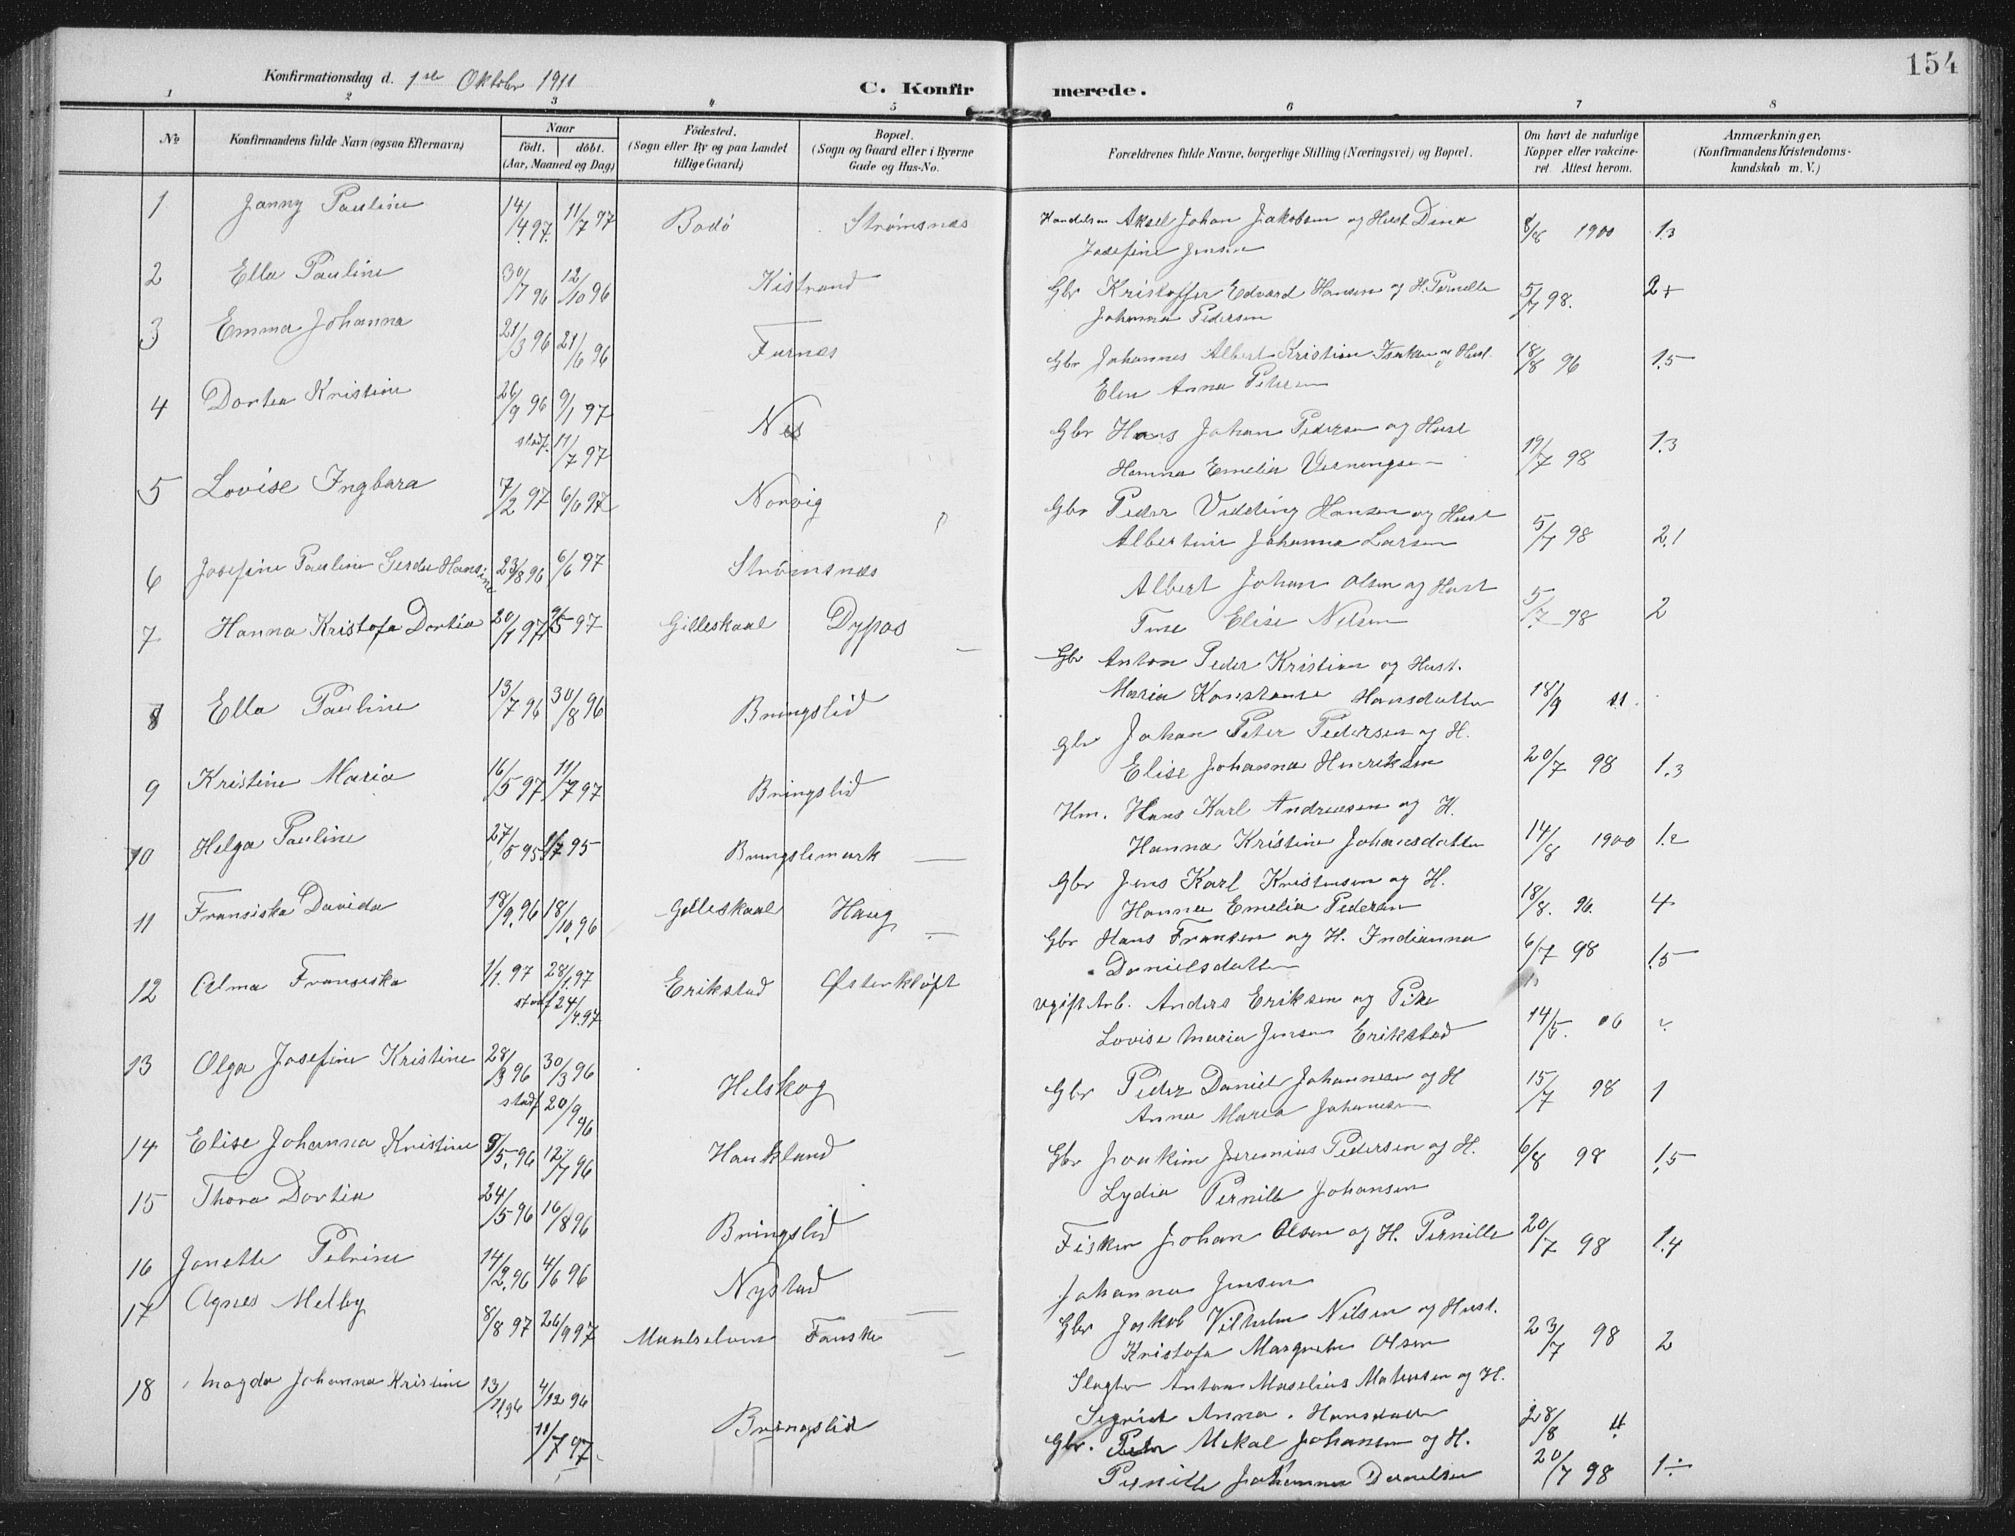 154
Konfirmationsdag d. 1ste Oktober 1911
C. Konfirmerede.
1 2 3 4 5 6 7 8
No
Konfirmandens fulde Navn (ogsaa Efternavn)
Naar
født. døbt.
(Aar, Maaned og Dag)
Fødested.
(Sogn eller By og paa Landet
tillige Gaard)
Bopæl.
(Sogn og Gaard eller i Byerne
Gade og Hus-No.
Forældrenes fulde Navne, borgerlige Stilling (Næringsvei) og Bopæl.
Om havt de naturlige
Kopper eller vakcine-
ret. Attest herom.
Anmærkninger.
(Konfirmandens Kristendoms-
kundskab m. V.)
1 Janny Pauline 14/4 97. 11/7 97 Bodö Strømsnæs Handelsm Aksel Johan Jakobsen og Hust Dina 8/8 1900 1.3
Josefine Jensen
2 Ella Pauline 30/7 96 12/10 96 Kistrand Gbr Kristoffer Edvard Hansen og H. Pernille 5/7 98. 2+
Johanna Pedersen
3 Emma Johanna 21/3 96 21/6 96 Furnæs Gbr Johannes Albert Kristian Isaksen og Hust. 18/8 96 1.5
Elen Anna Petersen
4 Dortea Kristine 26/9 96 9/1 97 Næs Gbr Hans Johan Pedersen og Hust 19/7 98 1.3
stadf. 11/7 97
Hanna Emelia
5 Lovise Ingbara 7/2 97 6/6 97 Norvig Gbr Peder Vedding Hansen og Hust 5/7 98 2.1
Albertine Johanna Larsen
6 Josefine Pauline Gerda Hansine 23/8 96 6/6 97 Strømsnæs Albert Johan Olsen og Hust 5/7 98 2
Tine Elise Nilsen
7 Hanna Kristofa Dortea 20/1 97 9/5 97 Gilleskaal Dypas Gbr Anton Peder Kristian og Hust. 18/9 11.
Maria Konstanse Hansdatter
8 Ella Pauline 13/7 96 30/8 96 Bringslid Gbr Johan Peter Pedersen og H. 20/7 98 1.3
Elise Johanna Henriksen
9 Kristine Maria 16/5 97 11/7 97 Bringslid Hm. Hans Karl Andreasen og H. 14/8 1900 1.2
Hanna Kristine Johansdatter
10 Helga Pauline 27/5 95 95 Bringslimark Gbr Jens Karl Kristensen og H. 18/8. 96. 4
Hanna Emelia Pedersen
11 Fransiska Davida 18/9. 96 18/10. 96 Gilleskaal Haug Gbr Hans Fransen og H. Indianna 6/7 98 1.5
Danielsdatter
12 Alma Fransiska 1/1. 97 28/1. 97 Erikstad Østerkløft ugift Arb. Anders Eriksen og Pike 14/5. 06
stadf 24/4. 97
Lovise Maria Jensen Erikstad
13 Olga Josefine Kristine 28/3 96 30/3 96 Helskog Gbr Peder Daniel Johannesen og H 15/7 98 1
stadf 20/9 96
Anna Maria Johansen
14 Elise Johanna Kristine 9/5. 96 12/7 96 Haukland Gbr Joakim Jeremias Pedersen og H. 6/8 98 1.5
Lydia Pernille Johansen
15 Thora Dortea 24/5 96 16/8 96 Bringslid Fisker Johan Olsen og H. Pernille 20/7 98 1.4
Johanna Jensen
16 Janette Petrine 14/2. 96 4/6 96 Nystad Gbr Jakob Vilhelm Nilsen og Hust. 23/7 98 2
Kristofa Margrete Olsen
17 Agnes Melby 8/8 97 26/9 97 Maalselven Fauske Slagter Anton Maselius Matisen og H. 28/8 11
Sigrid Anna Hansdatter
18 Magda Johanna Kristine 13/11 96 4/12 96 Bringslid Gbr. Peder Mekal Johansen og H. 20/7 98 1÷
11/7 97.
Pernille Johanna Danielsen